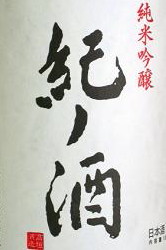 純米吟醸
紀ノ酒
日本酒